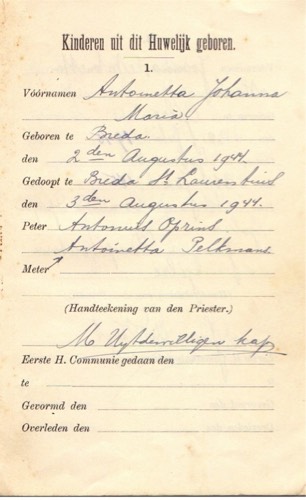 Kinderen uit dit Huwelijk geboren.
1.
Vóórnamen Antoinetta Johanna
Maria
Geboren te Breda
den 2den Augustus 1944.
Gedoopt te Breda St Laurentius
den 3den Augustus 1944.
Peter Antonius Oprins
Antoinetta Pelkmans
Meter
(Handteekening van den Priester.)
M Uytdewilligen kap
Eerste H. Communie gedaan den
te
Gevormd den
Overleden den